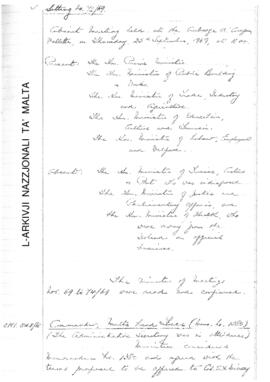 Sitting No. 75/69
Cabinet Meeting held at the Auberge d'Aragon
Valletta on Thursday 25th September, 1969, at
Present: The Hon. Prime Minister
The Hon. Minister of Public Building
and Works
The Hon. Minister of Trade, Industry
and Agriculture
The Hon. Minister of Education,
Culture and Tourism
The Hon. Minister of Labour, Employment
and Welfare.
Absent: The Hon. Minister of Finance, Customs
&amp; Port who was indisposed
The Hon. Minister of Justice and
Parliamentary Affairs, and
the Hon. Minister of Health, who
were away from the
Island on official
business.
The Minutes of meetings
Nos. 69 to 74/69 were read and confirmed.
Commander, Malta Land Force (Memo. No. 1350)
(The Administrative Secretary was in attendance)
Ministers considered
Memorandum No. 1350 and agreed with the
terms proposed to be offered to Col.
L-ARKIVJI NAZZJONALI TA' MALTA